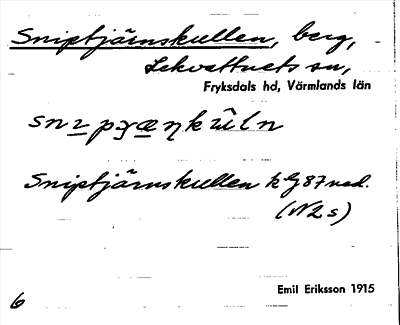 Sniptjärnskullen, berg,
Lekvattnets sn,
Fryksdals hd, Värmlands län
Sniptjärnskullen k
(N2s)
Emil Eriksson 1915
6